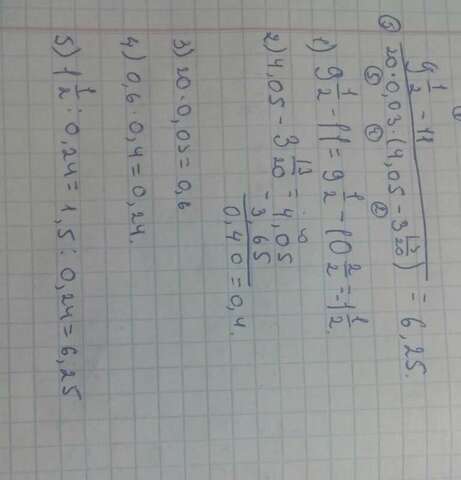 9 1/2 - 11
20 · 0,03 · (4,05 - 3 13/20) = 6,25.
1) 9 1/2 - 11 = 9 1/2 - 10 2/2 = 1 1/2.
2) 4,05 - 3 13/20 = 4,05
- 3,65
0,40 = 0,4.
3) 20 · 0,03 = 0,6
4) 0,6 · 0,4 = 0,24.
5) 1 1/2 : 0,24 = 1,5 : 0,24 = 6,25